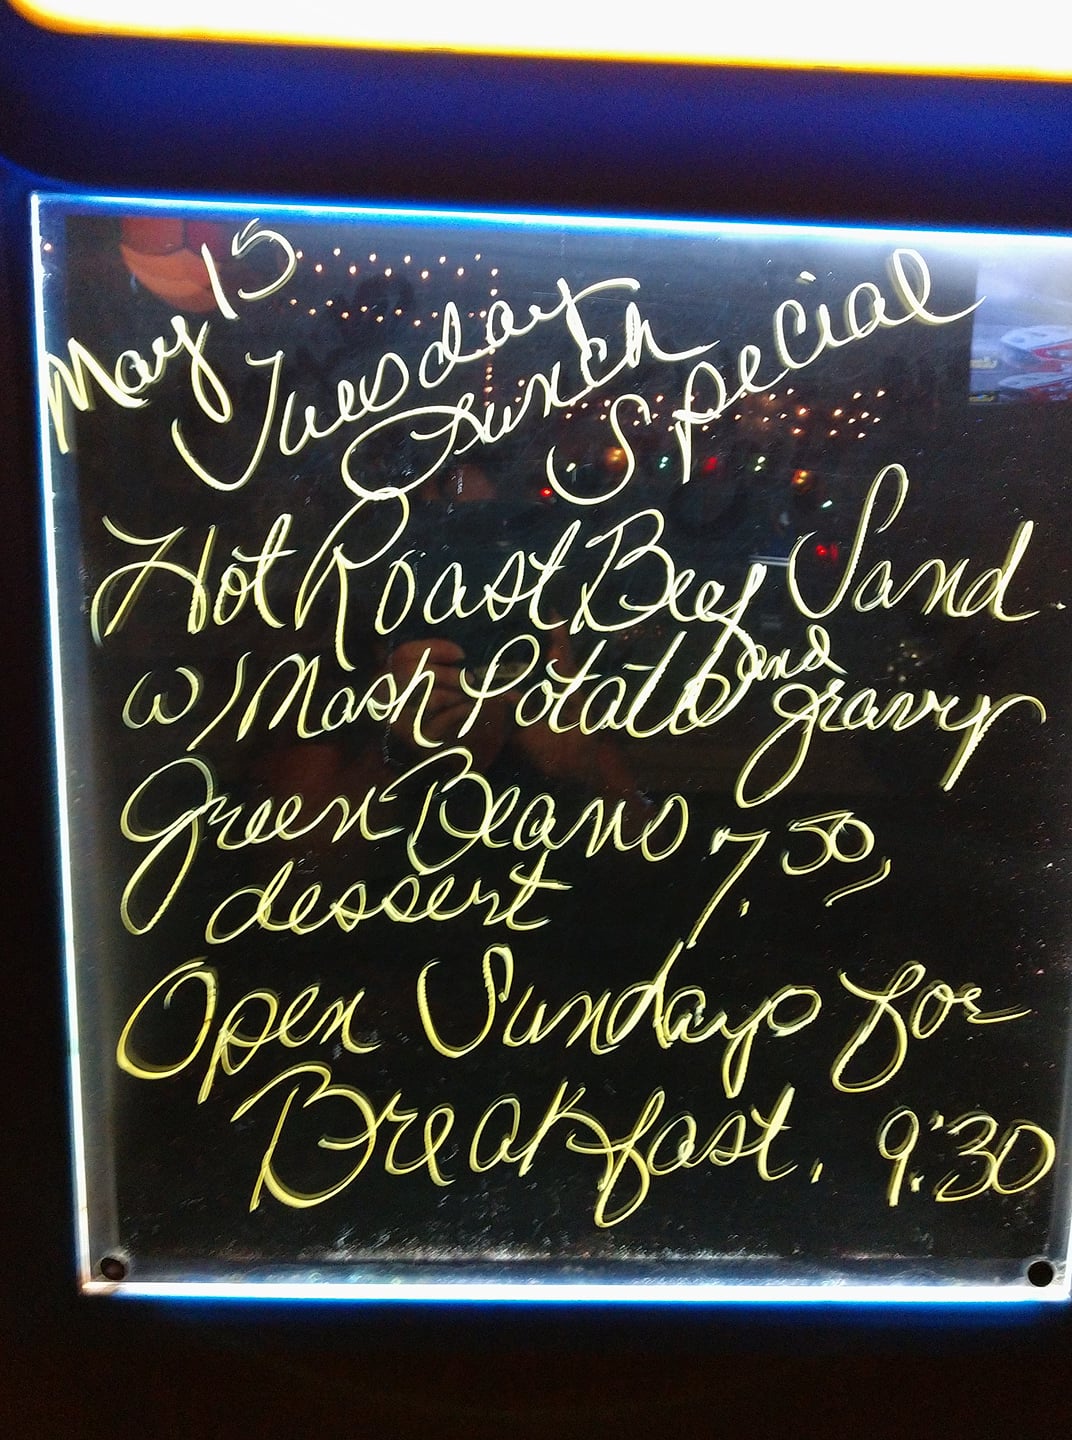 May 15
Tuesday
Lunch
Special
Hot Roast Beef Sand.
w/Mash Potato and gravy
Green Beans 7.50,
dessert
Open Sundays for
Breakfast. 9:30